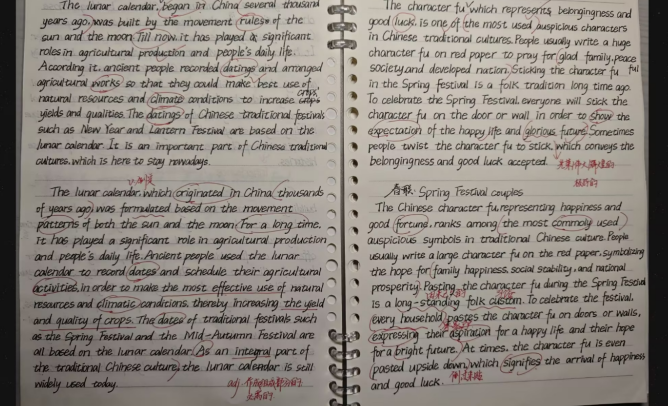 The lunar calendar, began in China several thousand
years ago, was built by the movement rules of the
sun and the moon. Till now, it has played a significant
roles in agricultural production and people's daily life.
According it, ancient people recorded datings and arranged
agricultural works so that they could make best use of
natural resources and climate conditions to increase crops
yields and qualities. The datings of Chinese traditional festivals
such as New Year and Lantern Festival are based on the
lunar calendar. It is an important part of Chinese traditional
cultures, which is here to stay nowadays.
The lunar calendar, which originated in China thousands
of years ago, was formulated based on the movement
patterns of both the sun and the moon. For a long time,
it has played a significant role in agricultural production
and people's daily life. Ancient people used the lunar
calendar to record dates and schedule their agricultural
activities, in order to make the most effective use of natural
resources and climatic conditions, thereby increasing the yield
and quality of crops. The dates of traditional festivals such
as the Spring Festival and the Mid-Autumn Festival are
all based on the lunar calendar. As an integral part of
the traditional Chinese culture, the lunar calendar is still
widely used today.
adj.
The character fu which represents belongingness and
good luck, is one of the most used auspicious characters
in Chinese traditional cultures. People usually write a huge
character fu on red paper to pray for glad family, peace
society and developed nation. Sticking the character fu
ful
in the Spring festival is a folk tradition long time ago.
To celebrate the Spring Festival, everyone will stick the
character fu on the door or wall in order to show the
expectation of the happy life and glorious future. Sometimes
people twist the character fu to stick, which conveys the
belongingness and good luck accepted.
春联: Spring Festival couples
The Chinese character fu, representing happiness and
good fortune, ranks among the most commonly used
auspicious symbols in traditional Chinese culture. People
usually write a large character fu on the red paper, symbolizing
the hope for family happiness, social stability, and national
prosperity. Pasting the character fu during the Spring Festival
is a long-standing folk custom. To celebrate the festival,
every household pastes the character fu on doors or walls,
expressing their aspiration for a happy life and their hope
for a bright future. At times, the character fu is even
pasted upside down, which signifies the arrival of happiness
and good luck.